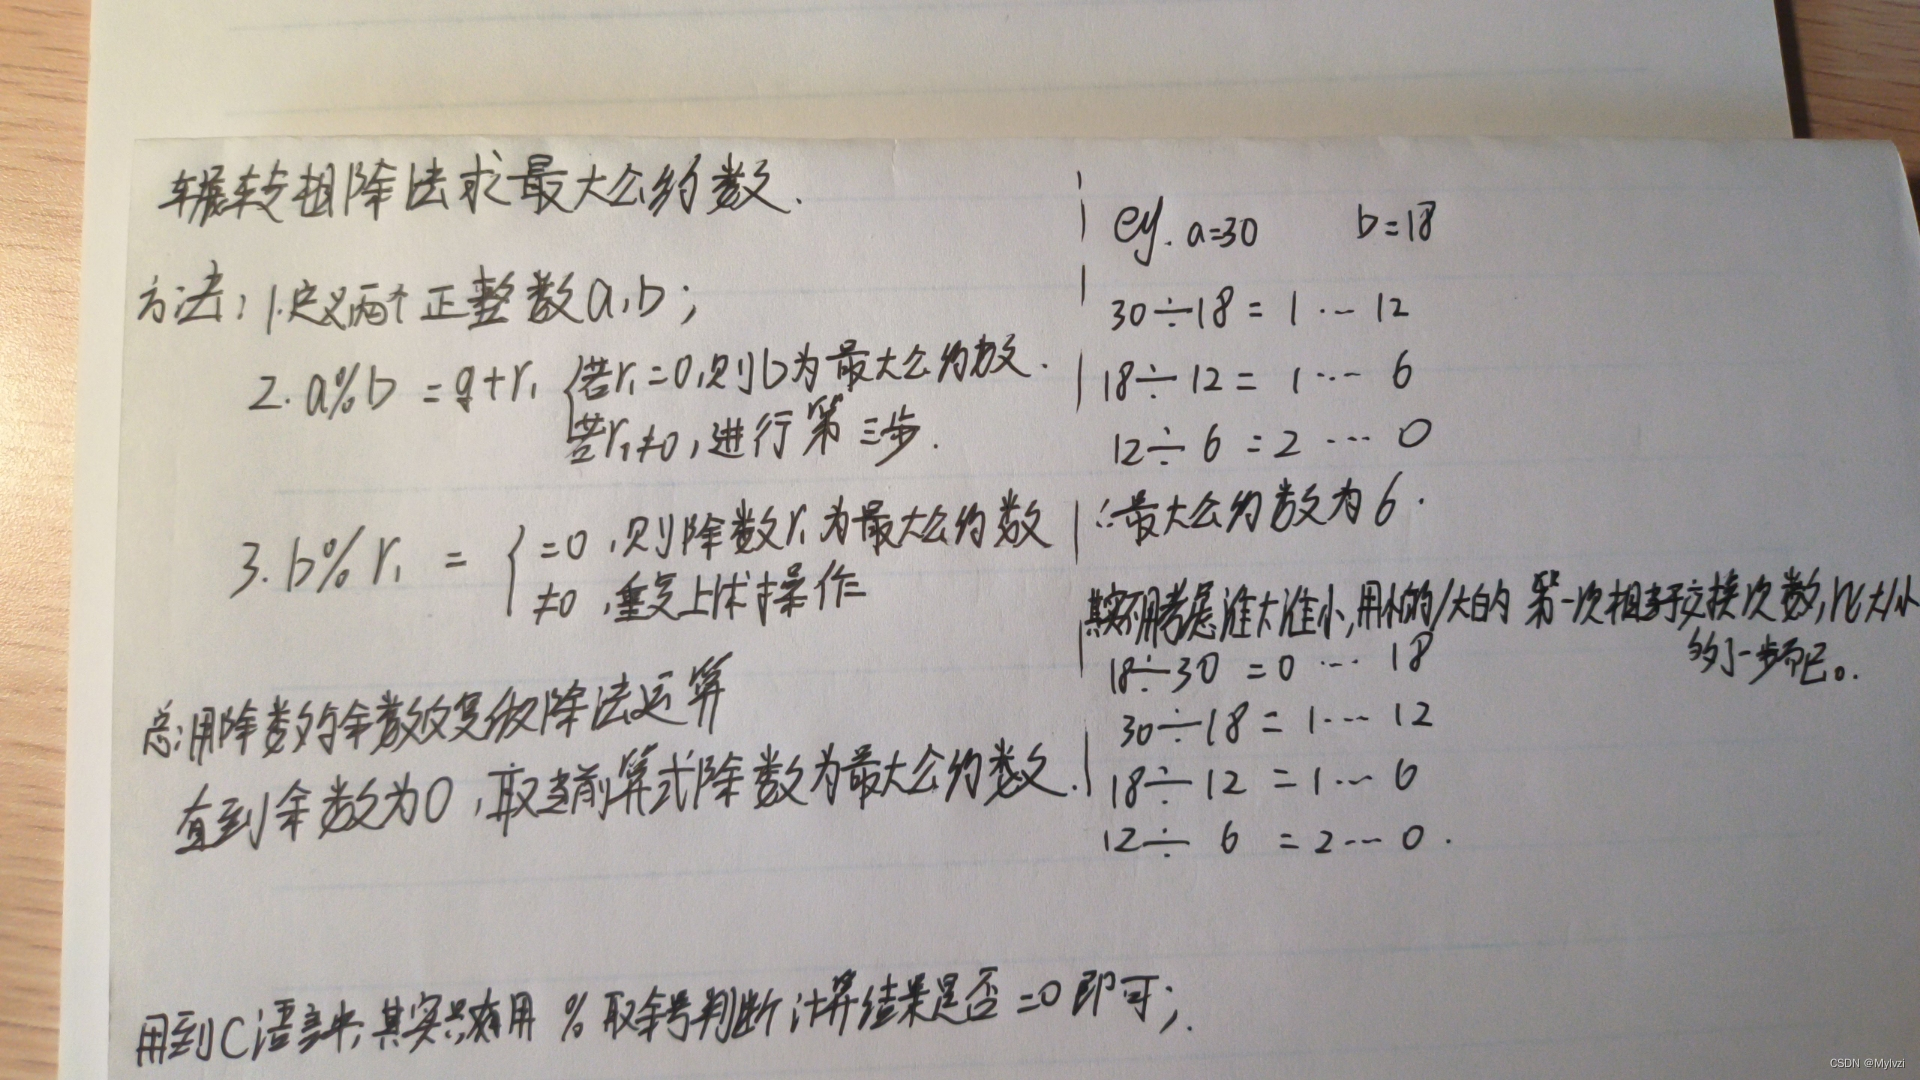 辗转相除法求最大公约数.
方法: 1.定义两个正整数a,b;
2. a%b = q+r₁ { 若r₁=0,则b为最大公约数.
若r₁≠0,进行第三步.
3. b% r₁ = { =0,则除数r₁为最大公约数
≠0,重复上述操作
总:用除数与余数反复做除法运算
直到余数为0,取当前算式除数为最大公约数.
用到C语言中,其实只有用 % 取余号判断计算结果是否=0即可;.
eg. a=30 b=18
30÷18 = 1 … 12
18÷12 = 1 … 6
12÷6 = 2 … 0
∴最大公约数为6.
其实不用考虑谁大谁小,用小的/大的 第一次相当于交换次数,比大/小
多了一步而已。.
18÷30 = 0 … 18
30÷18 = 1 … 12
18÷12 = 1 … 6
12÷6 = 2 … 0.
CSDN @Mylvzi